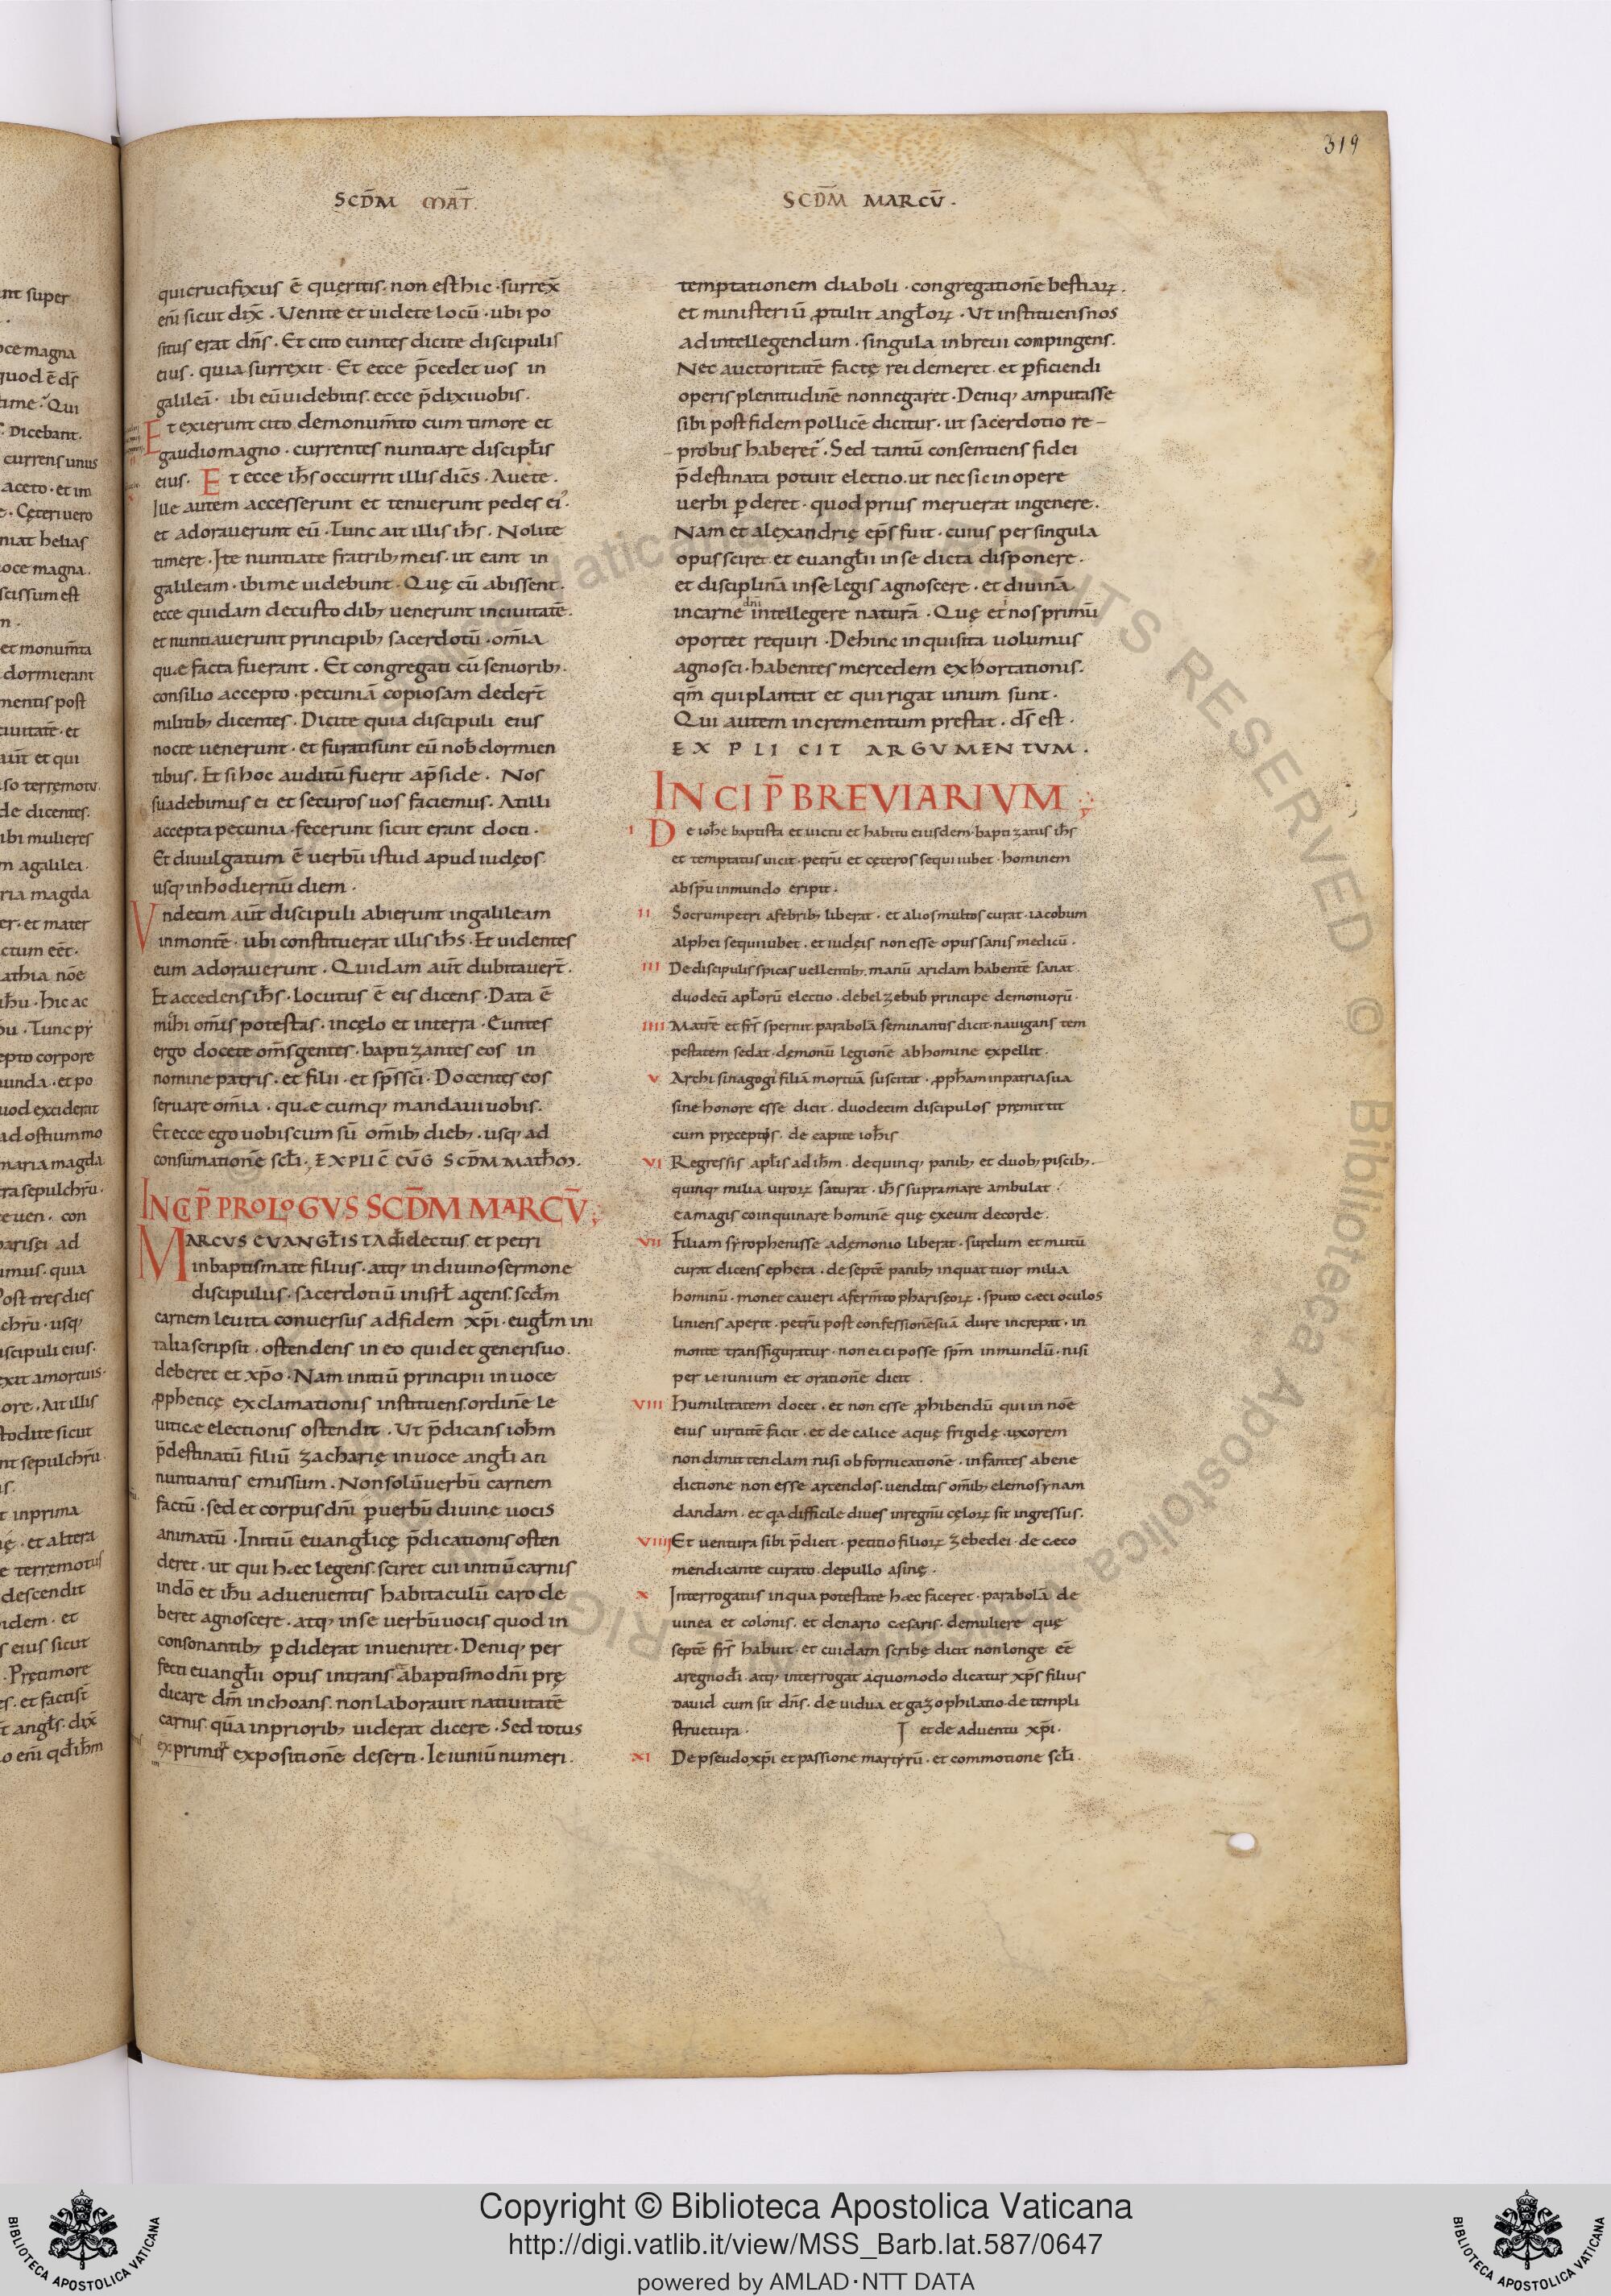 319
SCDM MAT.
SCDM MARCŪ.
nt super
oce magna
quod ē ds̄
time. Qui
. Dicebant.
currens unus
aceto. et im
e. Ceteri uero
niat helias
oce magna.
scissum est
et monum̄ta
dormierant
mentis post
ciuitatē. et
aūt et qui
so terręmotu.
de dicentes.
ibi mulieres
m agalilea.
ria magda
er. et mater
ctum eēt.
athia nōe
ihū. hic ac
epto corpore
unda. et po
uod exciderat
ad ostium mo
maria magda
tra sepulchrū.
e uen. con
pariseī ad
imus. quia
Post tres dies
chrū. usq;
iscipuli eius.
exit amortuis.
ore. Ait illis
todite sicut
nt sepulchrū.
t inprima
ę. et altera
e terremotus
descendit
idem. et
s eius sicut
. Prętimore
es. et factist̄
t angłs. dix̄
o enī qd̄ ihm̄
qui crucifixus ē queritis. non est hic. surrex̄
enī sicut dix̄. Venite et uidete locū. ubi po
situs erat dn̄s. Et cito euntes dicite discipulis
eius. quia surrexit. Et ecce p̄cedet uos in
galileā. ibi eū uidebitis. ecce p̄dixi uobis.
Et exierunt cito demonum̄to cum timore et
gaudio magno. currentes nuntiare discipłis
eius. Et ecce ih̄s occurrit illis dicēs. Auete.
Ille autem accesserunt et tenuerunt pedes ei'.
et adorauerunt eū. Tunc ait illis ih̄s. Nolite
timere. Ite nuntiate fratrib; meis. ut eant in
galileam. ibi me uidebunt. Quę cū abissent.
ecce quidam decustodib; uenerunt inciuitatē.
et nuntiauerunt principib; sacerdotū. om̄ia
quae facta fuerant. Et congregati cū seniorib;.
consilio accepto. pecuniā copiosam dedert̄
militib; dicentes. Dicite quia discipuli eius
nocte uenerunt. et furati sunt eū nob̄ dormien
tibus. Et si hoc auditū fuerit ap̄side. Nos
suadebimus ei et securos uos faciemus. At illi
accepta pecunia. fecerunt sicut erant docti.
Et diuulgatum ē uerbū istud apud iudęos
usq; in hodiernū diem.
Vndecim aūt discipuli abierunt ingalileam
inmontē. ubi constituerat illis ih̄s. Et uidentes
eum adorauerunt. Quidam aūt dubitauert̄.
Et accedens ih̄s. locutus ē eis dicens. Data ē
mihi om̄is potestas. incęlo et interra. Euntes
ergo docete om̄s gentes. baptizantes eos in
nomine patris. et filii. et sp̄s sc̄i. Docentes eos
seruare om̄ia. quae cumq; mandaui uobis.
Et ecce ego uobiscum sū om̄ib; dieb;. usq; ad
consūmationē scłi. EXPLIC̄ EUḠ SCDM MATH̄M.
INCIP̄ PROLOGVS SCD̄M MARCV̄;
MARCUS EVANGŁISTA dī electus et petri
in baptismate filius. atq; in diuino sermone
discipulus. sacerdotiū inisrł agens. scdm̄
carnem leuita conuersus adfidem xp̄i. eugłm in i
talia scripsit. ostendens in eo quid et generi suo.
deberet et xp̄o. Nam initiū principii in uoce
pphetice exclamationis instituens. ordinē le
uiticae electionis ostendit. Ut p̄dicans iohm̄
p̄destinatū filiū zacharię inuoce angłi an
nuntiantis emissum. Non solū uerbū carnem
factū. sed et corpus dn̄i p uerbū diuine uocis
animatū. Initiū euangłicę p̄dicationis osten
deret. ut qui haec legens. sciret cui initiū carnis
indo et ihu aduenientis habitaculū caro de
beret agnoscere. atq; inse uerbū uocis quod in
consonantib; p diderat inueniret. Deniq; per
fecti euangłii opus intrans. abaptismo dn̄i prę
dicare dm̄ inchoans. non laborauit natiuitatē
carnis. quā inpriorib; uiderat dicere. Sed totus
exprimis expositionē deserti. Ieiuniū numeri.
temptationem diaboli. congregationē bestiaꝝ.
et ministeriū ptulit angłoꝝ. Ut instituens nos
ad intellegendum. singula inbreui conpingens.
Nec auctoritatē factę rei demeret. et pficiendi
operis plenitudinē non negaret. Deniq; amputasse
sibi post fidem pollicē dicitur. ut sacerdotio re-
probus haberet̄. Sed tantū consentiens fidei
p̄destinata potuit electio. ut nec sic in opere
uerbi pderet. quod prius meruerat ingenere.
Nam et alexandrię ep̄s fuit. cuius per singula
opus scire. et euangłii inse dicta disponere.
et disciplinā inse legis agnoscere. et diuinā
incarne dn̄i intellegere naturā. Quę et nos primū
oportet requiri. Dehinc inquisita uolumus
agnosci. habentes mercedem exhortationis.
qm̄ qui plantat et qui rigat unum sunt.
Qui autem incrementum prestat. ds̄ est.
EXPLICIT ARGVMENTVM.
INCIP̄ BREVIARIVM;
I De ioh̄e baptista et uictu et habitu eiusdem. baptizatus ih̄s
et temptatus uicit. petrū et cęteros sequi iubet. hominem
abspū inmundo eripit.
II Socrum petri afebrib; liberat. et alios multos curat. iacobum
alphei sequi iubet. et iudęis non esse opus sanis medicū.
III De discipulis spicas uellentib;. manū aridam habentē sanat.
duodecī apłorū electio. de belzebub principe demoniorū.
IIII Matrē et frs̄ spernit. parabolā seminantis dicit. nauigans tem
pestatem sedat. demonū legionē abhomine expellit.
V Archisinagogi filiā mortuā suscitat. ppham inpatria sua
sine honore esse dicit. duodecim discipulos premittit
cum pręceptis. de capite ioh̄is
VI Regressis apłis ad ihm̄. de quinq; panib; et duob; piscib;.
quinq; milia uiroꝝ saturat. ih̄s supra mare ambulat.
ea magis coinquinare hominē quę exeunt decorde.
VII Filiam syrophenisse ademonio liberat. surdum et mutū
curat dicens epheta. de septē panib; inquattuor milia
hominū. monet caueri aferm̄to phariseoꝝ. sputo caeci oculos
liniens aperit. petrū post confessionē suā dure increpat. in
monte transfiguratur. non eici posse spm̄ inmundū. nisi
per ieiunium et orationē dicit.
VIII Humilitatem docet. et non esse phibendū qui in nōe
eius uirtutē facit. et de calice aquę frigidę. uxorem
non dimittendam nisi ob fornicationē. infantes abene
dictione non esse arcendos. uenditis om̄ib; elemosynam
dandam. et qa difficile diues inregnū cęloꝝ sit ingressus.
VIIII Et uentura sibi p̄dicit. petitio filioꝝ zebedei. de caeco
mendicante curato. de pullo asinę.
X Interrogatus in qua potestate haec faceret. parabolā de
uinea et colonis. et denario caesaris. de muliere quę
septē frs̄ habuit. et cuidam scribę dicit non longe eē
aregno dī. atq; interrogat aquomodo dicatur xp̄s filius
dauid cum sit dn̄s. de uidua et gazophilatio. de templi
structura. et de aduentu xp̄i.
XI De pseudo xp̄i et passione martyrū. et commotione scłi.
Copyright © Biblioteca Apostolica Vaticana
http://digi.vatlib.it/view/MSS_Barb.lat.587/0647
powered by AMLAD·NTT DATA
BIBLIOTECA APOSTOLICA VATICANA
BIBLIOTECA APOSTOLICA VATICANA